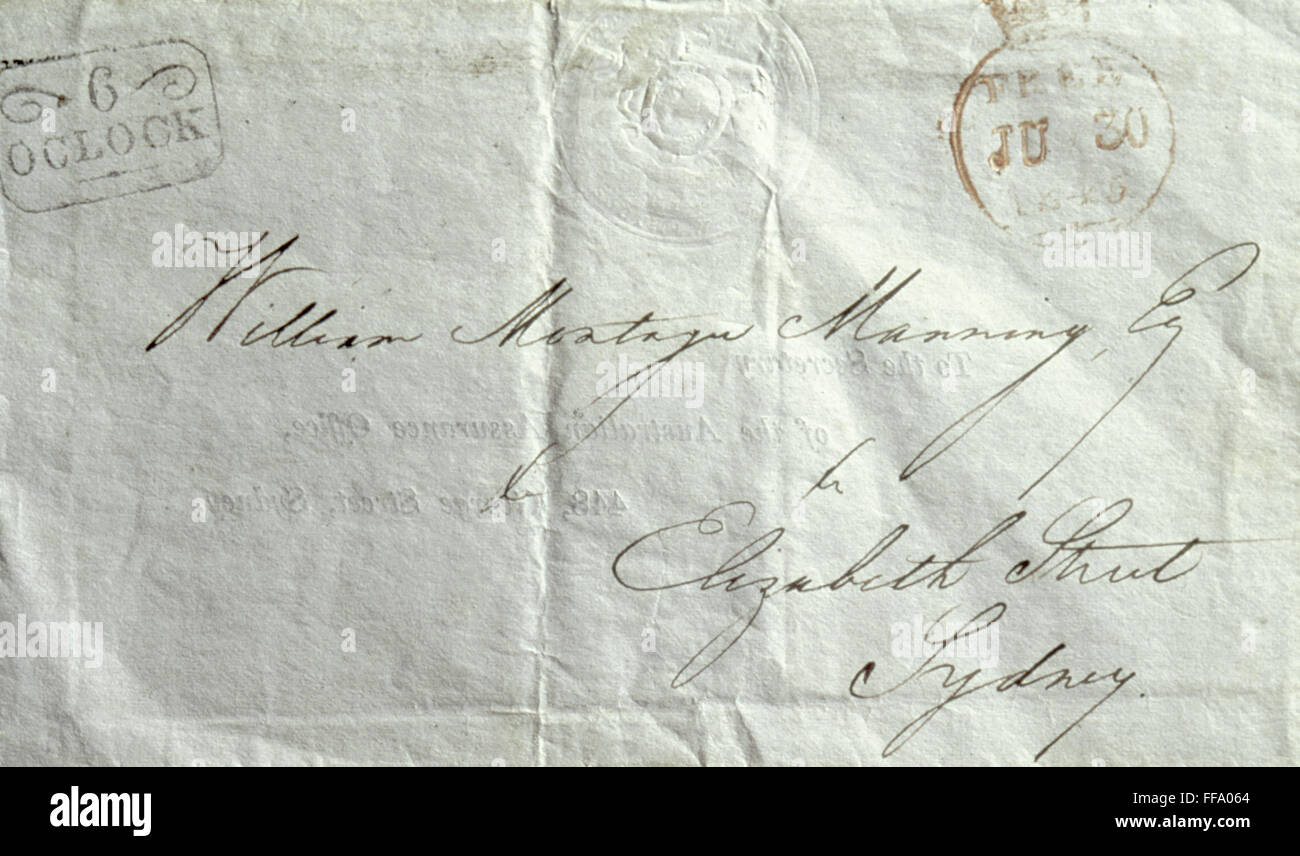 6
OCLOCK
FREE
JU 30
William Montague Manning, Esq
To the Secretary
of the Australian Assurance Office,
448, George Street, Sydney.
Elizabeth Street
Sydney.
alamy
Image ID: FFA064
www.alamy.com